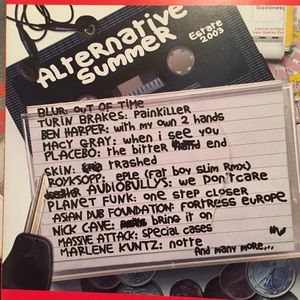 ALTERNATIVE
SUMMER
Estate
2003
BLUR: OUT OF TIME
TURIN BRAKES: PAINKILLER
BEN HARPER: with my own 2 hands
MACY GRAY: when i see you
PLACEBO: the bitter end
SKIN: trashed
ROYKSOPP: eple (fat boy slim Rmx)
AUDIOBULLYS: we don'tcare
PLANET FUNK: one step closer
ASIAN DUB FOUNDATION: FORTRESS EUROPE
NICK CAVE: bring it on
MASSIVE ATTACK: special cases
MARLENE KUNTZ: notte
And many more...